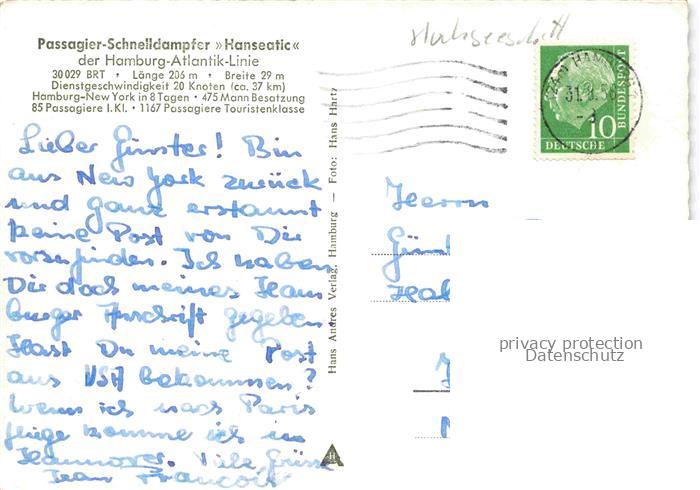 Passagier-Schnelldampfer »Hanseatic«
der Hamburg-Atlantik-Linie
30 029 BRT • Länge 206 m • Breite 29 m
Dienstgeschwindigkeit 20 Knoten (ca. 37 km)
Hamburg-New York in 8 Tagen • 475 Mann Besatzung
85 Passagiere I. Kl. • 1167 Passagiere Touristenklasse
Lieber Günter! Bin
aus New York zurück
und ganz erstaunt
keine Post von Dir
vorzufinden. Ich habe
Dir doch meines Ham
burger Anschrift gegeben
Hast Du meine Post
aus USA bekommen?
Wenn ich nach Paris
fliege komme ich in
Hannover. Viele Grüsse
Jean François
Hans Andres Verlag, Hamburg — Foto: Hans Hartz
HAMBURG
10
DEUTSCHE
BUNDESPOST
Herrn
privacy protection
Datenschutz